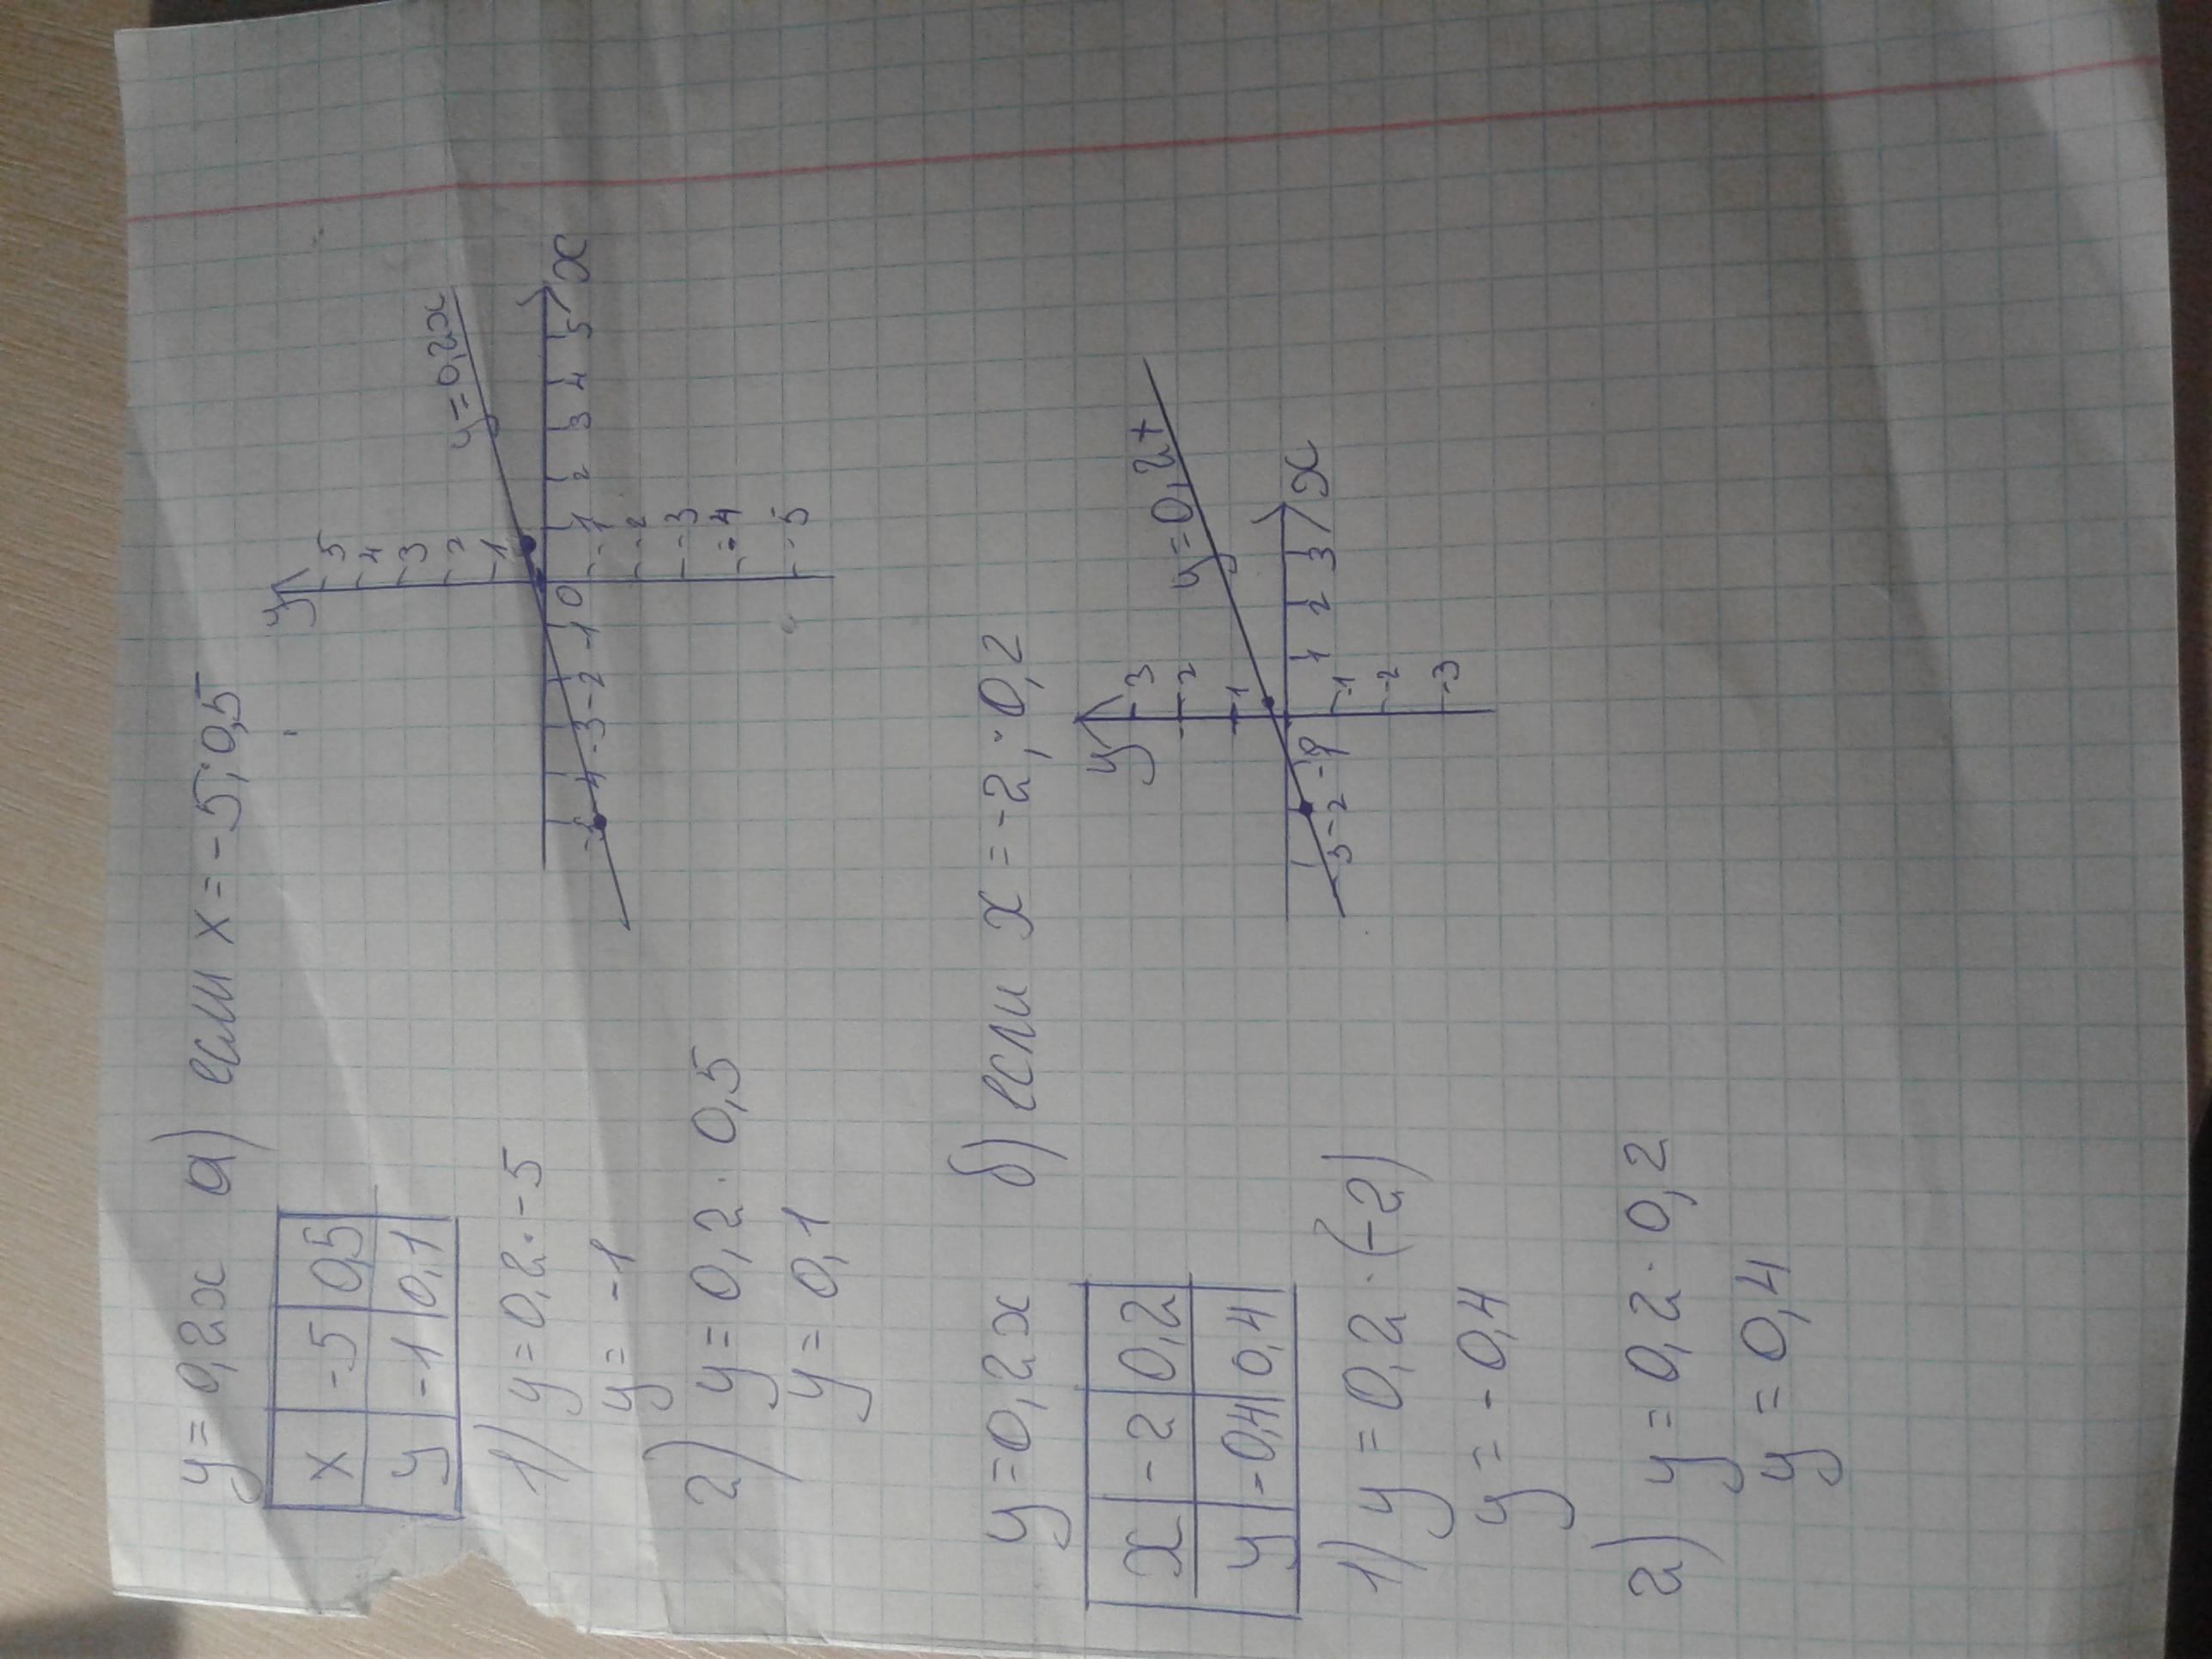 y = 0,2x а) если x = -5; 0,5
x -5 0,5
y -1 0,1
y
5
4
3
2
1
y = 0,2x
-4 -3 -2 -1 0 1 2 3 4 5 x
-1
-2
-3
-4
-5
1) y = 0,2 · -5
y = -1
2) y = 0,2 · 0,5
y = 0,1
y = 0,2x б) если x = -2; 0,2
x -2 0,2
y -0,4 0,4
y
3
2
1
y = 0,2+
3 -2 -1 1 2 3 x
-1
-2
-3
1) y = 0,2 · (-2)
y = -0,4
2) y = 0,2 · 0,2
y = 0,4